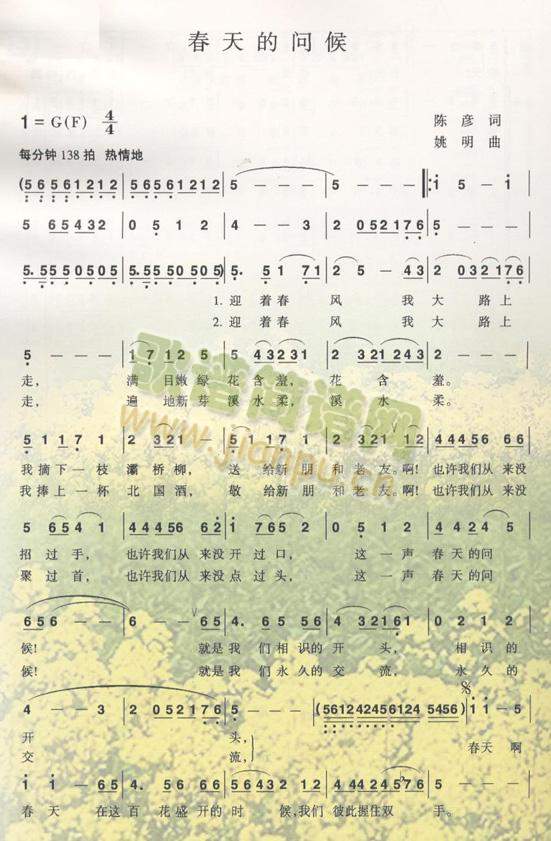 春天的问候
1=G(F) 4/4
陈彦 词
姚明 曲
每分钟138拍 热情地
(5 6 5 6 1 2 1 2 | 5 6 5 6 1 2 1 2 | 5 - - - | 5 - - - |: 1 5 - 1 |
5 6 5 4 3 2 | 0 5 1 2 | 4 - - 3 | 2 0 5 2 1 7 6 | 5 - - - |
5. 5 5 5 0 5 0 5 | 5. 5 5 5 0 5 0 5) | 5. 5 1 7 1 | 2 5 - 4 3 | 2 0 3 2 1 7 6 |
1.迎着春 风 我大路上
2.迎着春 风 我大路上
5 - - - | 1 7 1 2 5 | 5 4 3 2 3 1 | 2 3 2 1 2 4 3 | 2 - - - |
走, 满目嫩绿花含羞, 花含羞。
走, 遍地新芽溪水柔, 溪水柔。
歌谱简谱网
www.jianpu.cn
5 1 1 7 1 | 2 3 2 1 - | 5 5 4 5 1 | 2 3 2 1 1 2 | 4 4 4 5 6 6 6 |
我摘下一枝灞桥柳, 送给新朋和老友。啊!也许我们从来没
我捧上一杯北国酒, 敬给新朋和老友。啊!也许我们从来没
5 6 5 4 1 | 4 4 4 5 6 6 2 | 1 7 6 5 2 | 0 5 1 2 | 4 4 2 4 5 |
招过手, 也许我们从来没开过口, 这一声春天的问
聚过首, 也许我们从来没点过头, 这一声春天的问
6 5 6 - - | 6 - - 6 5 | 4. 6 5 5 6 | 4 4 3 2 1 - | 0 2 1 2 |
候! 就是我们相识的开头, 相识的
候! 就是我们永久的交流, 永久的
4 - - 3 | 2 0 5 2 1 7 6 | 5 - - - | (5612424562456124 5456) | 1 1 - 5 |
开 头,
交 流, 春天 啊
1 1 - 5 6 | 5. 4. 5 6 6 | 4. 6 5 6 5 | 2 3 2 1 2 | 4 4 4 2 4 5 7 6 5 |
春天 在这百花盛开的时候,我们彼此握住双手。